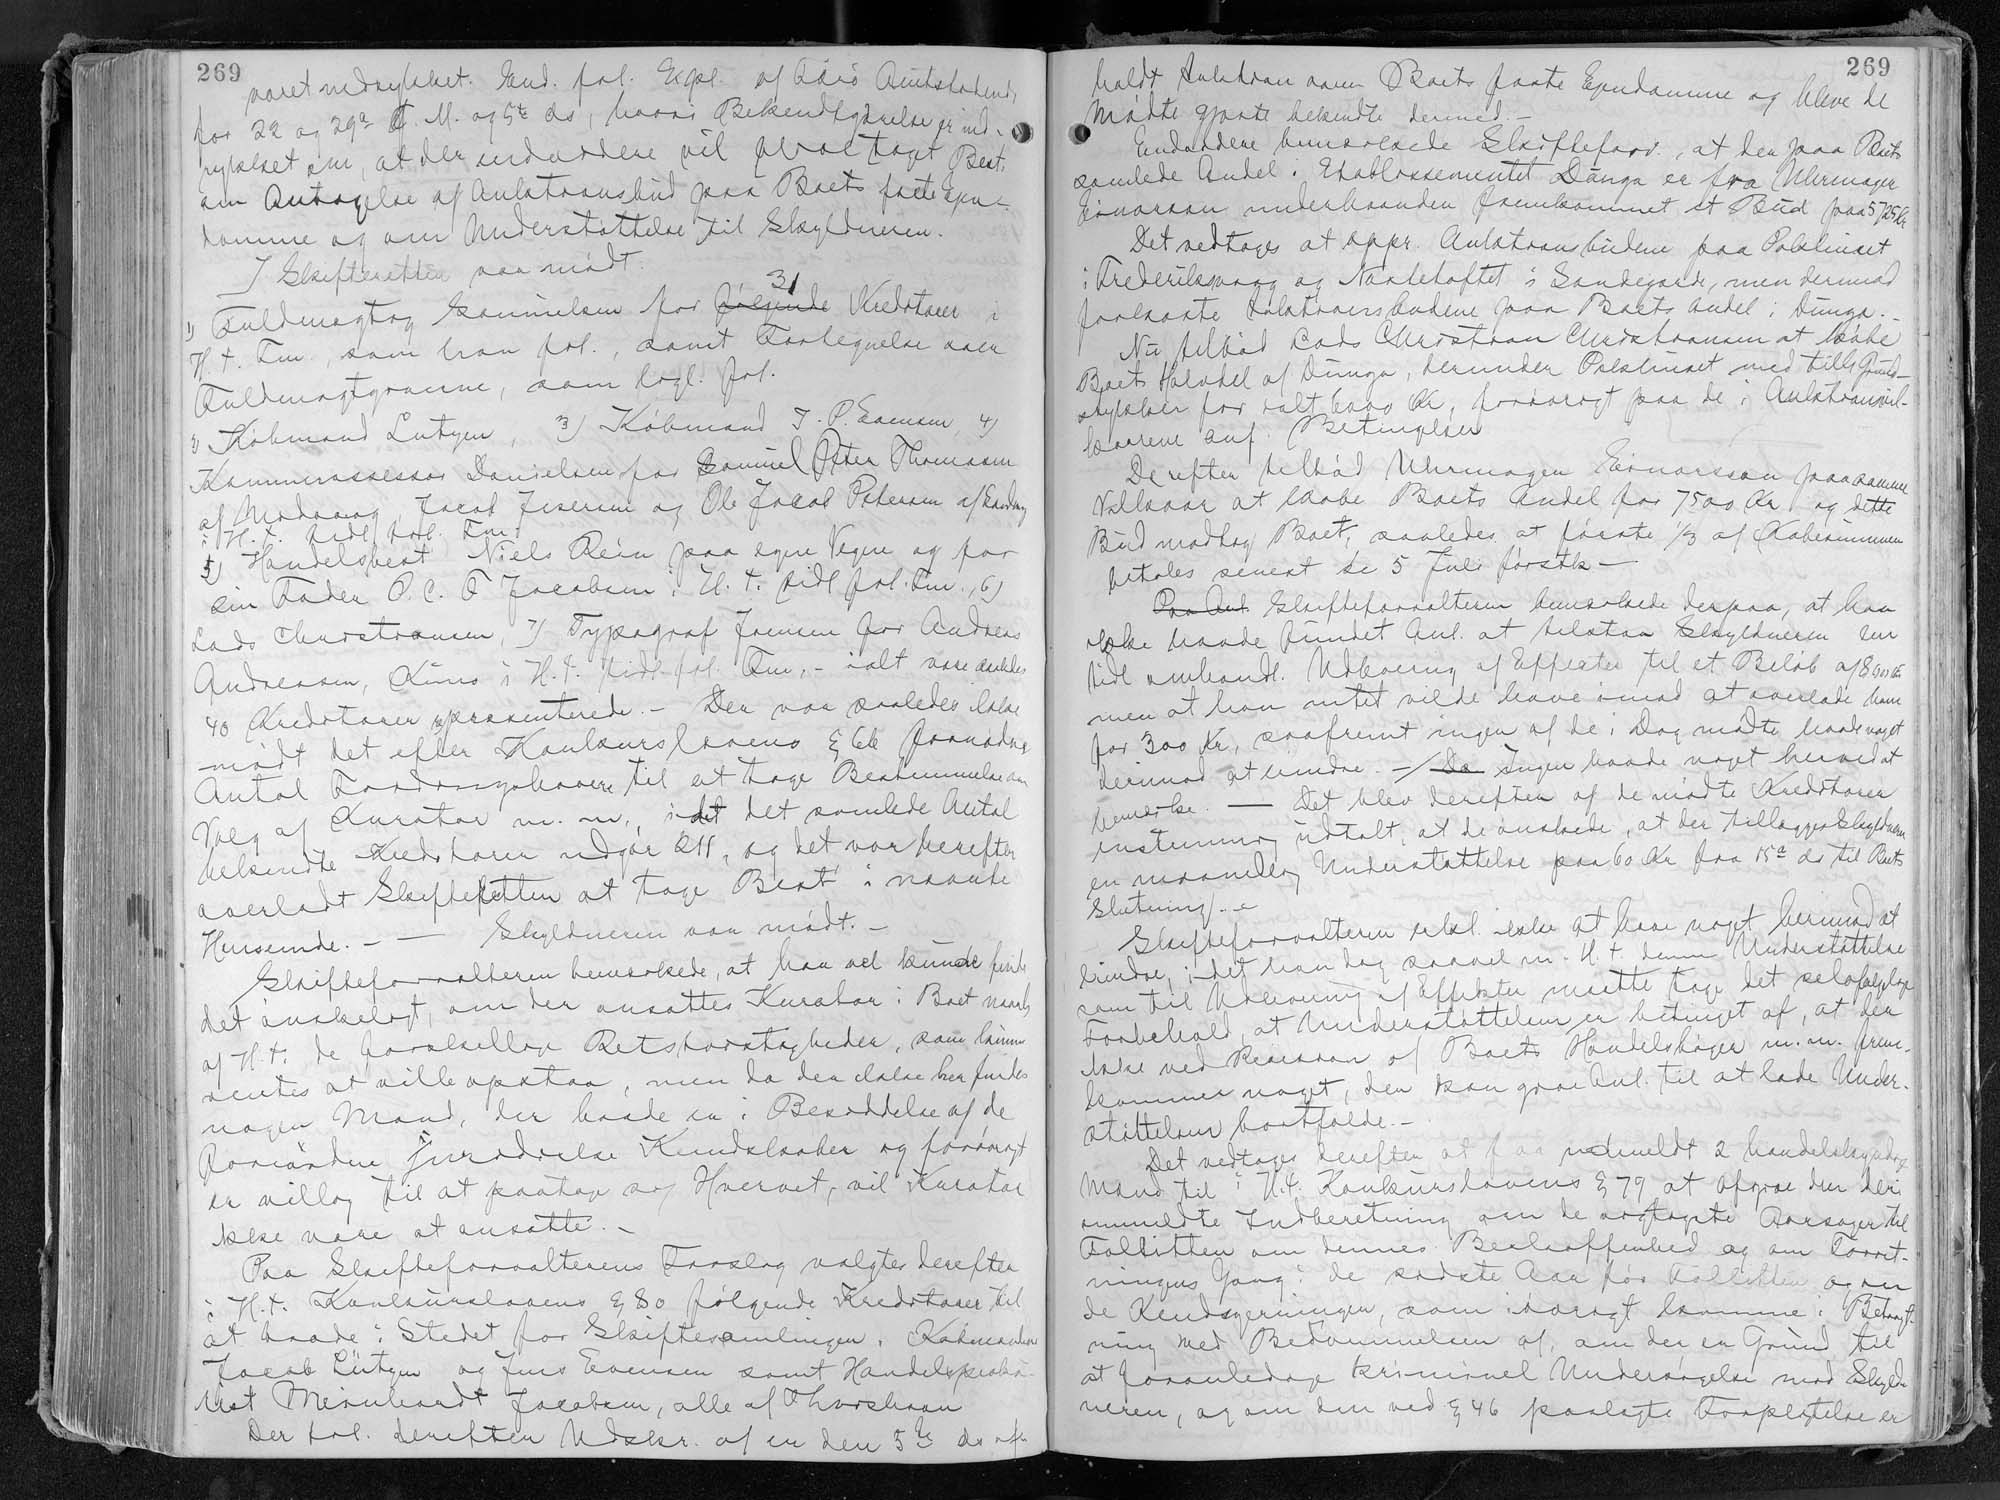 269
været indrykket. End. frl. Expl. af Færø Amtstidende
for 22 og 29de f. M. og 5te ds, hvori Bekendtgørelse er ind-
rykket om, at der endvidere vil blive taget Best.
om Antagelse af Auktionsbud paa Boets faste Ejen-
domme og om Understøttelse til Skyldneren.
I Skifteretten var mødt
31
1) Fuldmægtig Samuelsen for følgende Kreditorer i
H. t. Fm., som han frl., samt Fortegnelse over
Fuldmagtgiverne, som ligl. frl.
2) Købmand Lützen, 3) Købmand J. P. Evensen 4)
Kammerassessor Danielsen for Samuel Peter Thomsen
af Midvaag, Jacob Joensen og Ole Jacob Petersen af Sandvaag
i H. t. tidl. frl. Fm.
5) Handelsbest. Niels Rein paa egne Vegne og for
sin Fader P. C. F. Jacobsen i H. t. tidl. frl. Fm., 6)
Lads Christiansen, 7) Typograf Joensen for Andreas
Andreasen, i H. t. tidl. frl. Fm., - ialt vare saaledes
40 Kreditorer repræsenterede. - Der var saaledes ikke
mødt det efter Konkurslovens § 66 fornødne
Antal Fordringshavere til at tage Bestemmelse om
Valg af Kurator m. m., idet det samlede Antal
bekendte Kreditorer udgør 211, og det var herefter
overladt Skifteretten at tage Best. i nævnte
Henseende. - — Skyldneren var mødt. -
Skifteforvalteren bemærkede, at han vel kunde finde
det ønskeligt, om der ansattes Kurator i Boet navnlig
af H. t. de forskellige Retsstridigheder, som kunne
ventes at ville opstaa, men da der ikke her findes
nogen Mand, der baade er i Besiddelse af de
fornødne juridiske Kundskaber og forøvrigt
er villig til at paatage sig Hvervet, vil Kurator
ikke være at ansætte. -
Paa Skifteforvalterens Forslag valgtes derefter
i H. t. Konkurslovens § 80 følgende Kreditorer til
at træde i Stedet for Skiftesamlingen: Købmændene
Jacob Lützen og Jens Evensen samt Handelsprokü-
rist Meinhardt Jacobsen, alle af Thorshavn
Der frl. derefter Udskr. af en den 5te ds af-
269
holdt Auktion over Boets faste Ejendomme og bleve de
mødte gjorte bekendte dermed. -
Endvidere bemærkede Skifteforv., at der paa Boets
samlede Andel i Etablissementet Dunga er fra Uhrmager
Einarsson underhaanden fremkommet et Bud paa 5725 Kr
Det vedtages at appr. Auktionsbudene paa Pakhuset
i Frederiksvaag og Næstehøftet i Sandegærde, men dermod
forkaste Auktionsbudene paa Boets Andel i Dunga. -
Nu tilbød Lads Christian Christiansen at købe
Boets Halvdel af Dunga, derunder Pakhuset med tillig. Grund-
stykker for ialt 6000 Kr, forøvrigt paa de i Auktionsvil-
kaarene anf. Betingelser
Derefter tilbød Uhrmager Einarsson paa samme
Vilkaar at købe Boets Andel for 7500 Kr og dette
Bud modtog Boet, saaledes at første 1/3 af Købesummen
betales senest de 5 Juli førstk. —
Paa Anl. Skifteforvalteren bemærkede derpaa, at han
ikke havde fundet Anl. at tilstaa Skyldneren den
tidl. omhandl. Udlevering af Effekter til et Beløb af
men at han intet vilde have imod at overlade ham
for 300 Kr, saafremt ingen af de i Dag mødte havde noget
derimod at erindre. -/ Da Ingen havde noget herved at
bemærke. — Det blev derefter af de mødte Kreditorer
enstemmig udtalt, at de ønskede, at der tillægges Skyldneren
en maanedlig Understøttelse paa 60 Kr fra 15de ds til Boets
Slutning. -
Skifteforvalteren erkl. ikke at have noget herimod at
erindre, idet han dog saavel m. H. t. denne Understøttelse
som til Udlevering af Effekter maatte tage det selvfølgelige
Forbehold, at Understøttelsen er betinget af, at der
ikke ved Revision af Boets Handelsbøger m. m. frem-
kommer noget, der kan give Anl. til at lade Under-
støttelsen bortfalde. -
Det vedtages derefter at faa udmeldt 2 handelskyndige
Mænd til i H. t. Konkurslovens § 79 at afgive den deri
ommeldte Indberetning om de vigtigste Aarsager til
Fallitten om dennes Beskaffenhed og om Forret-
ningens Gang i de sidste Aar før Fallitten og om
de Kendsgerninger, som iøvrigt komme i Betragt-
ning ved Bedømmelsen af, om der er Grund til
at foranledige kriminel Undersøgelse mod Skyld-
neren, og om den ved § 46 paalagte Forpligtelse er